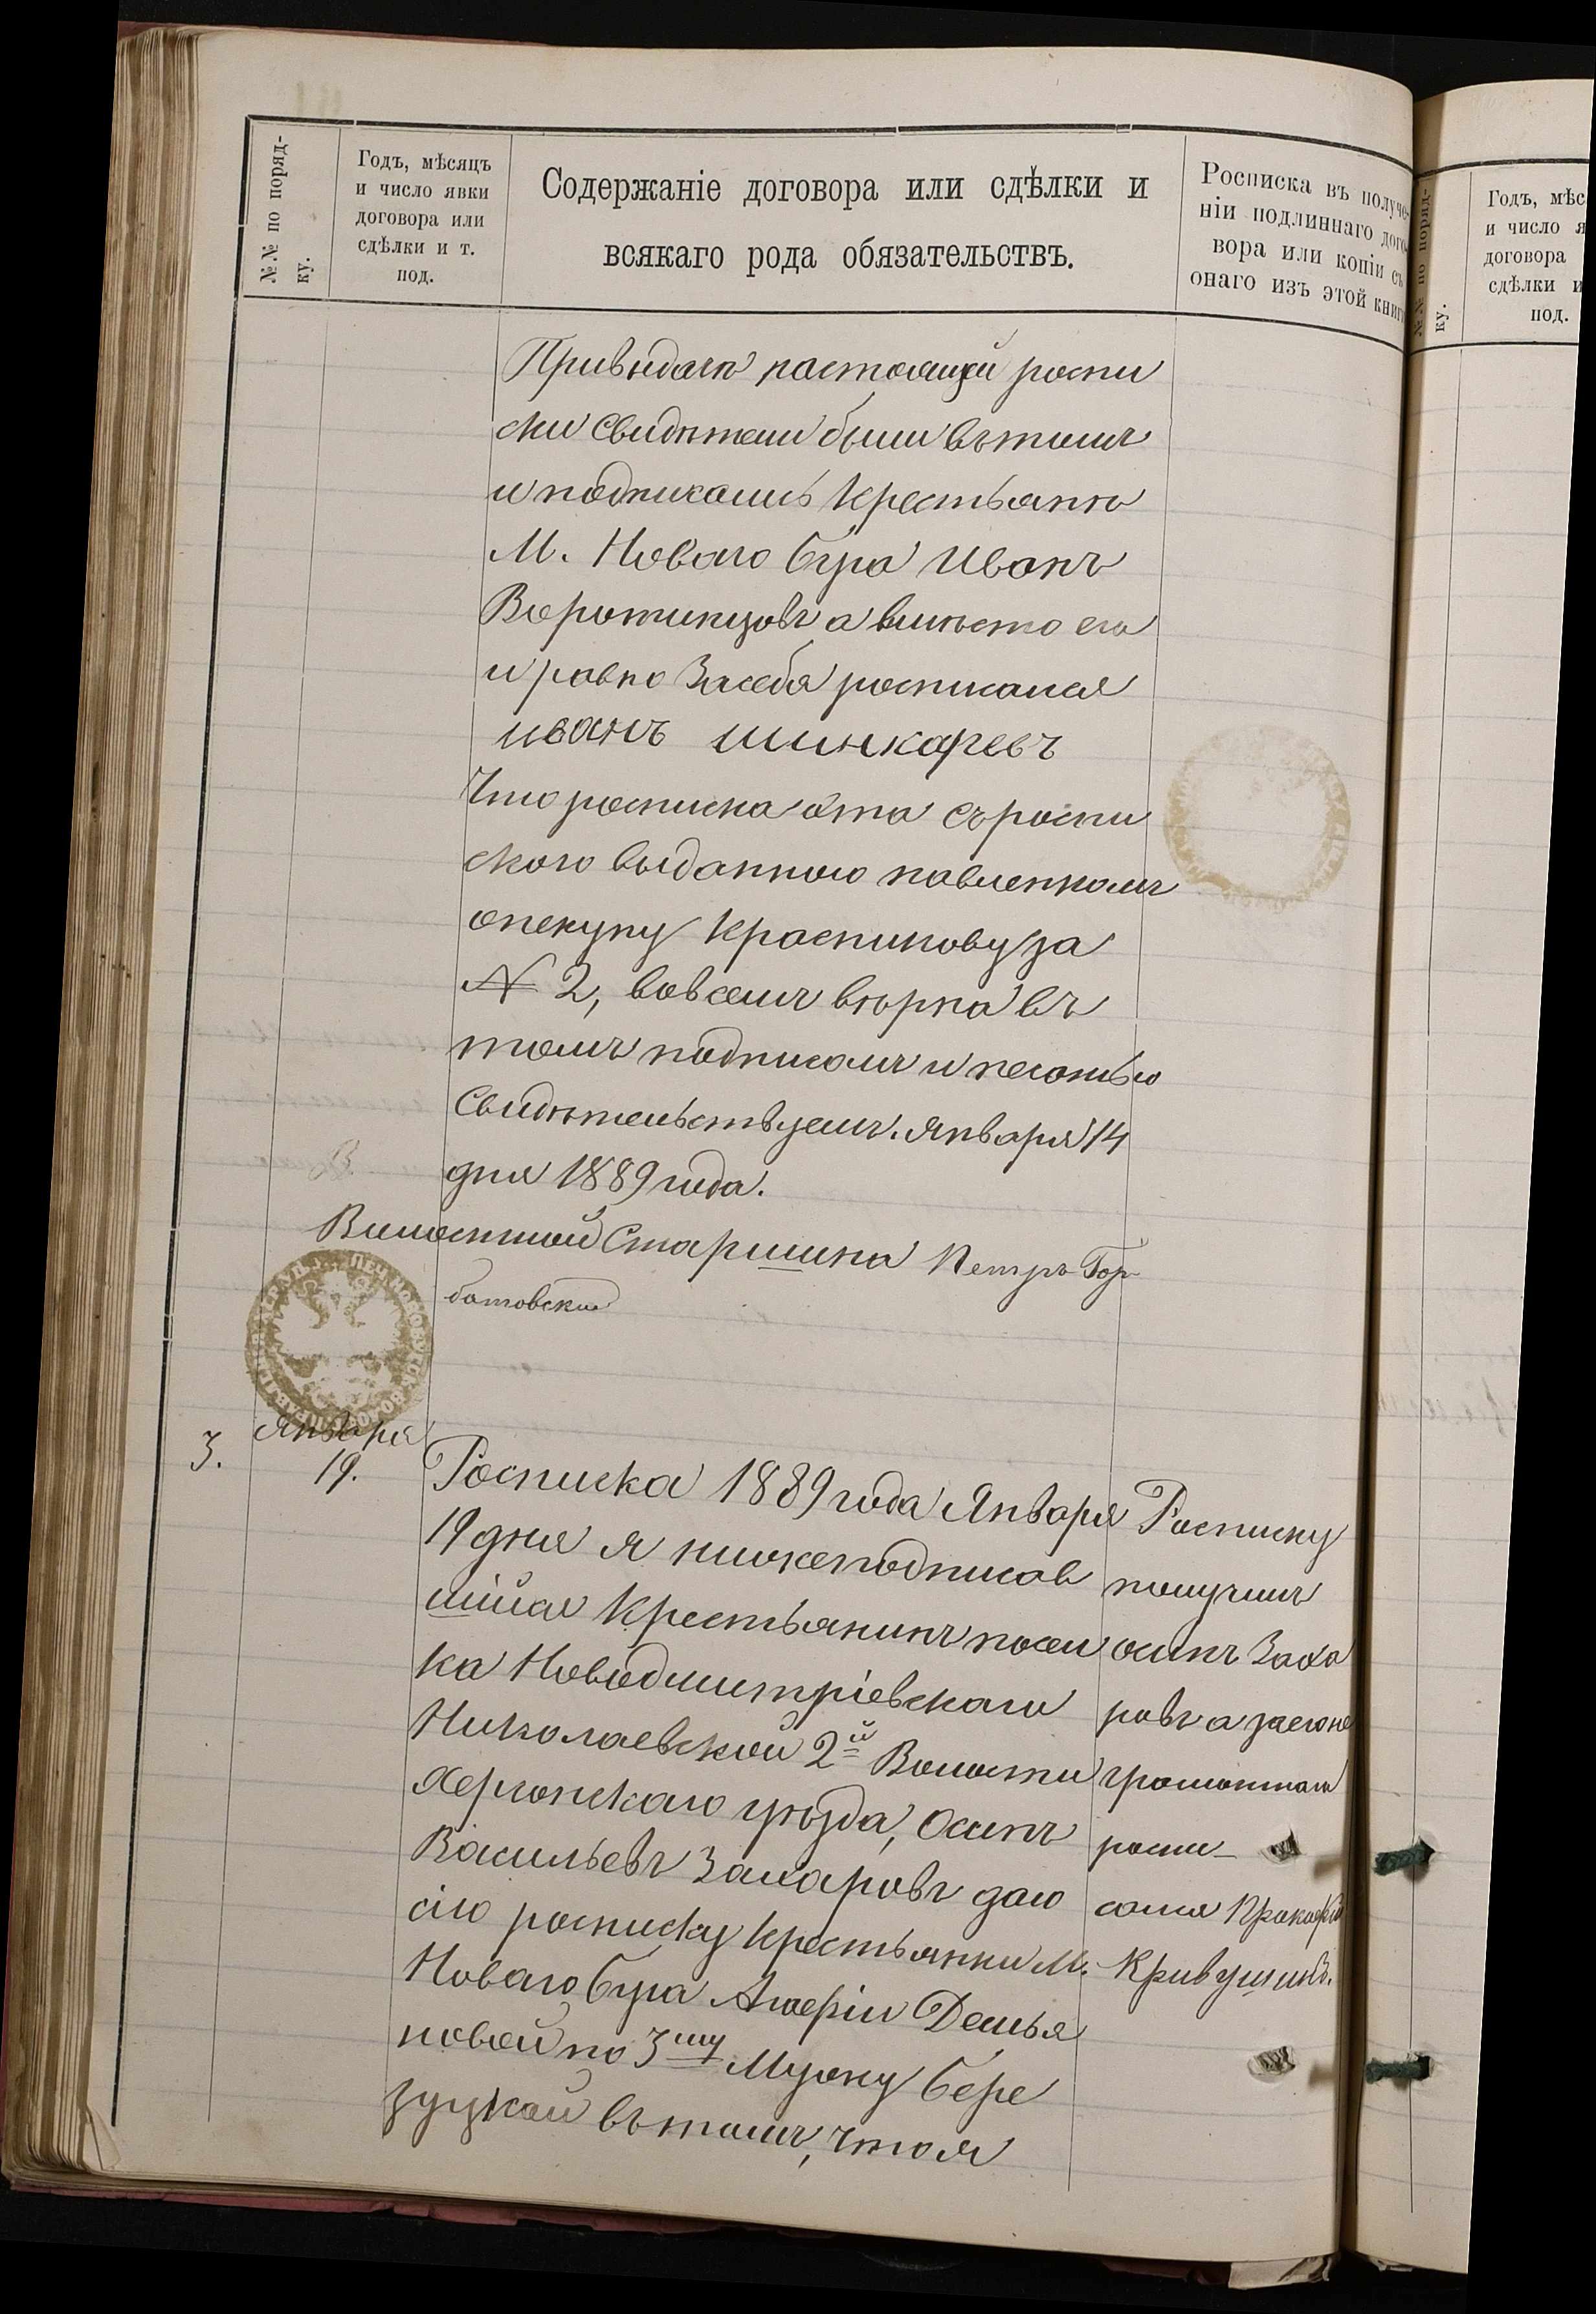 №№ по поряд-
ку.
Годъ, мѣсяцъ
и число явки
договора или
сдѣлки и т.
под.
Содержаніе договора или сдѣлки и
всякаго рода обязательствъ.
Росписка въ получе-
ніи подлиннаго дого-
вора или копіи съ
онаго изъ этой книги
Привыдачи настоящей роспи
ски свидѣтели были вътомъ
и подписались Крестьяне
М. Новаго Буга Иванъ
Воротинцовъ а вмѣсто его
и равно Засебя росписался
иванъ шинкаревъ
Что росписка эта съроспи
ского выданною павленкомъ
опекуну Красникову за
№ 2, вовсемъ вѣрна въ
томъ подписомъ и печатью
Свидѣтельствуемъ. Января 14
дня 1889 года.
Волостной Старшина Петръ Гор-
батовский
3.
Января
19.
Росписка 1889 года Января
19 дня я нижеподписав
шійся Крестьянинъ посел
ка Новодмитріевскаго
Николаевской 2й Волости
Херсонскаго уѣзда, Осипъ
Васильевъ Захаровъ даю
сію росписку крестьянки М.
Новаго Буга Демья
новой по 3му Мужу Бере
зуцкой вътомъ, что я
Росписку
получилъ
осипъ Заха
ровъ а заегоне
грамотнаго
роспи-
сался Прокофій
Кривушинъ.
№№ по поряд-
ку.
Годъ, мѣс
и число я
договора
сдѣлки и
под.